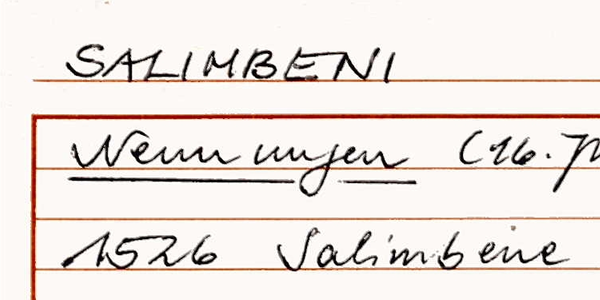 SALIMBENI
Nennungen (16. J
1526 Salimbene